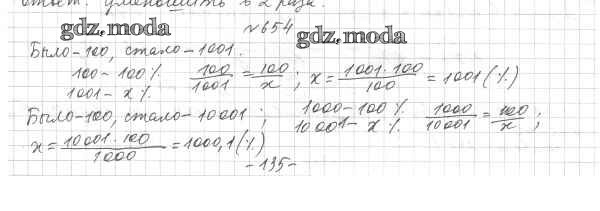 ответ: уменьшить в 2 раза.
gdz.moda
№654
gdz.moda
Было-100, стало-1001.
100-100% 100/1001 = 100/x ; x = 1001·100/100 = 1001(%)
1001-x%
Было-100, стало-10001 ; 1000-100% 1000/10001 = 100/x ;
10001-x%
x = 10001·100/1000 = 1000,1(%)
-195-